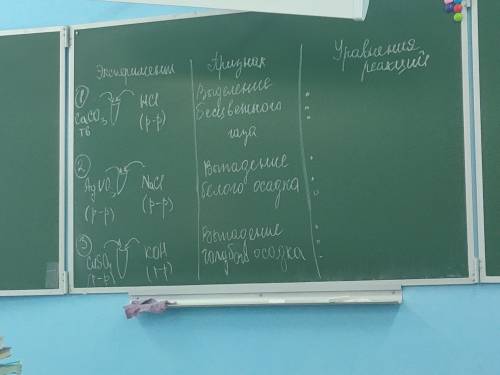 Эксперимент Признак Уравнения
реакций
① CaCO₃ HCl Выделение
тв (р-р) бесцветного
газа
② AgNO₃ NaCl Выпадение
(р-р) (р-р) белого осадка
③ CuSO₄ KOH Выпадение
(р-р) (р-р) голубого осадка